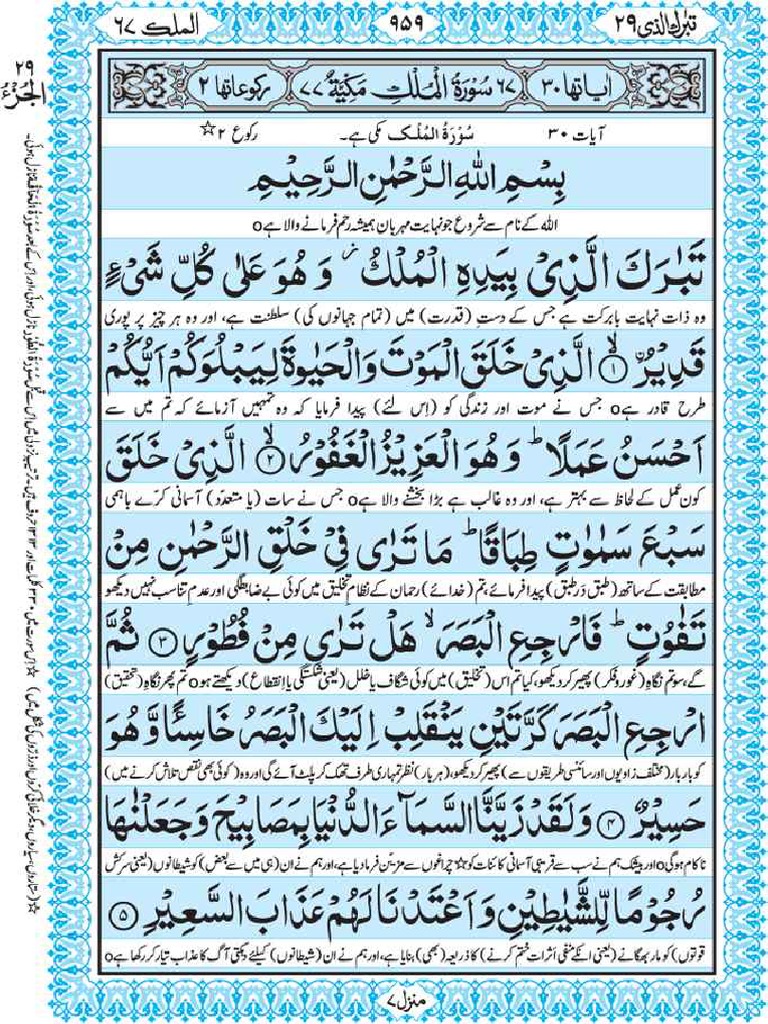 تبٰرک الذی ۲۹
۹۵۹
الملک ۶۷
اٰیاتها ۳۰
۶۷ سُوْرَةُ الْمُلْكِ مَكِّيَّةٌ ۷۷
رکوعاتها ۲
آیات ۳۰
سُوْرَةُ الْمُلْك مکی ہے۔
رکوع ۲☆
بِسْمِ اللّٰهِ الرَّحْمٰنِ الرَّحِيْمِ
اللہ کے نام سے شروع جو نہایت مہربان ہمیشہ رحم فرمانے والا ہے o
تَبٰرَكَ الَّذِيْ بِيَدِهِ الْمُلْكُ ز وَ هُوَ عَلٰى كُلِّ شَيْءٍ
وہ ذات نہایت بابرکت ہے جس کے دستِ (قدرت) میں (تمام جہانوں کی) سلطنت ہے، اور وہ ہر چیز پر پوری
قَدِيْرُ ۙ﴿۱﴾ الَّذِيْ خَلَقَ الْمَوْتَ وَالْحَيٰوةَ لِيَبْلُوَكُمْ اَيُّكُمْ
طرح قادر ہے o جس نے موت اور زندگی کو (اِس لئے) پیدا فرمایا کہ وہ تمہیں آزمائے کہ تم میں سے
اَحْسَنُ عَمَلًا ؕ وَ هُوَ الْعَزِيْزُ الْغَفُوْرُ ۙ﴿۲﴾ الَّذِيْ خَلَقَ
کون عمل کے لحاظ سے بہتر ہے، اور وہ غالب ہے بڑا بخشنے والا ہے o جس نے سات (یا متعدّد) آسمانی کرّے باہمی
سَبْعَ سَمٰوٰتٍ طِبَاقًا ؕ مَا تَرٰى فِيْ خَلْقِ الرَّحْمٰنِ مِنْ
مطابقت کے ساتھ (طبق دَر طبق) پیدا فرمائے، تم (خدائے) رحمان کے نظامِ تخلیق میں کوئی بے ضابطگی اور عدمِ تناسب نہیں دیکھو
تَفٰوُتٍ ؕ فَارْجِعِ الْبَصَرَ ۙ هَلْ تَرٰى مِنْ فُطُوْرٍ ﴿۳﴾ ثُمَّ
گے، سو تم نگاہِ (غور و فکر) پھیر کر دیکھو، کیا تم اس (تخلیق) میں کوئی شگاف یا خلل (یعنی شکستگی یا اِنقطاع) دیکھتے ہو o تم پھر نگاہِ (تحقیق)
ارْجِعِ الْبَصَرَ كَرَّتَيْنِ يَنْقَلِبْ اِلَيْكَ الْبَصَرُ خَاسِئًا وَّ هُوَ
کو بار بار (مختلف زاویوں اور سائنسی طریقوں سے) پھیر کر دیکھو، (ہر بار) نظر تمہاری طرف تھک کر پلٹ آئے گی اور وہ (کوئی بھی نقص تلاش کرنے میں)
حَسِيْرٌ ﴿۴﴾ وَ لَقَدْ زَيَّنَّا السَّمَآءَ الدُّنْيَا بِمَصَابِيْحَ وَ جَعَلْنٰهَا
ناکام ہو گی o اور بیشک ہم نے سب سے قریبی آسمانی کائنات کو ☆ چراغوں سے مزیّن فرما دیا ہے، اور ہم نے ان (ہی میں سے بعض) کو شیطانوں (یعنی سرکش
رُجُوْمًا لِّلشَّيٰطِيْنِ وَ اَعْتَدْنَا لَهُمْ عَذَابَ السَّعِيْرِ ﴿۵﴾
قوتوں) کو مار بھگانے (یعنی انکے منفی اَثرات ختم کرنے) کا ذریعہ (بھی) بنایا ہے، اور ہم نے ان (شیطانوں) کیلئے دہکتی آگ کا عذاب تیار کر رکھا ہے o
منزل ۷
۲۹
الجزء